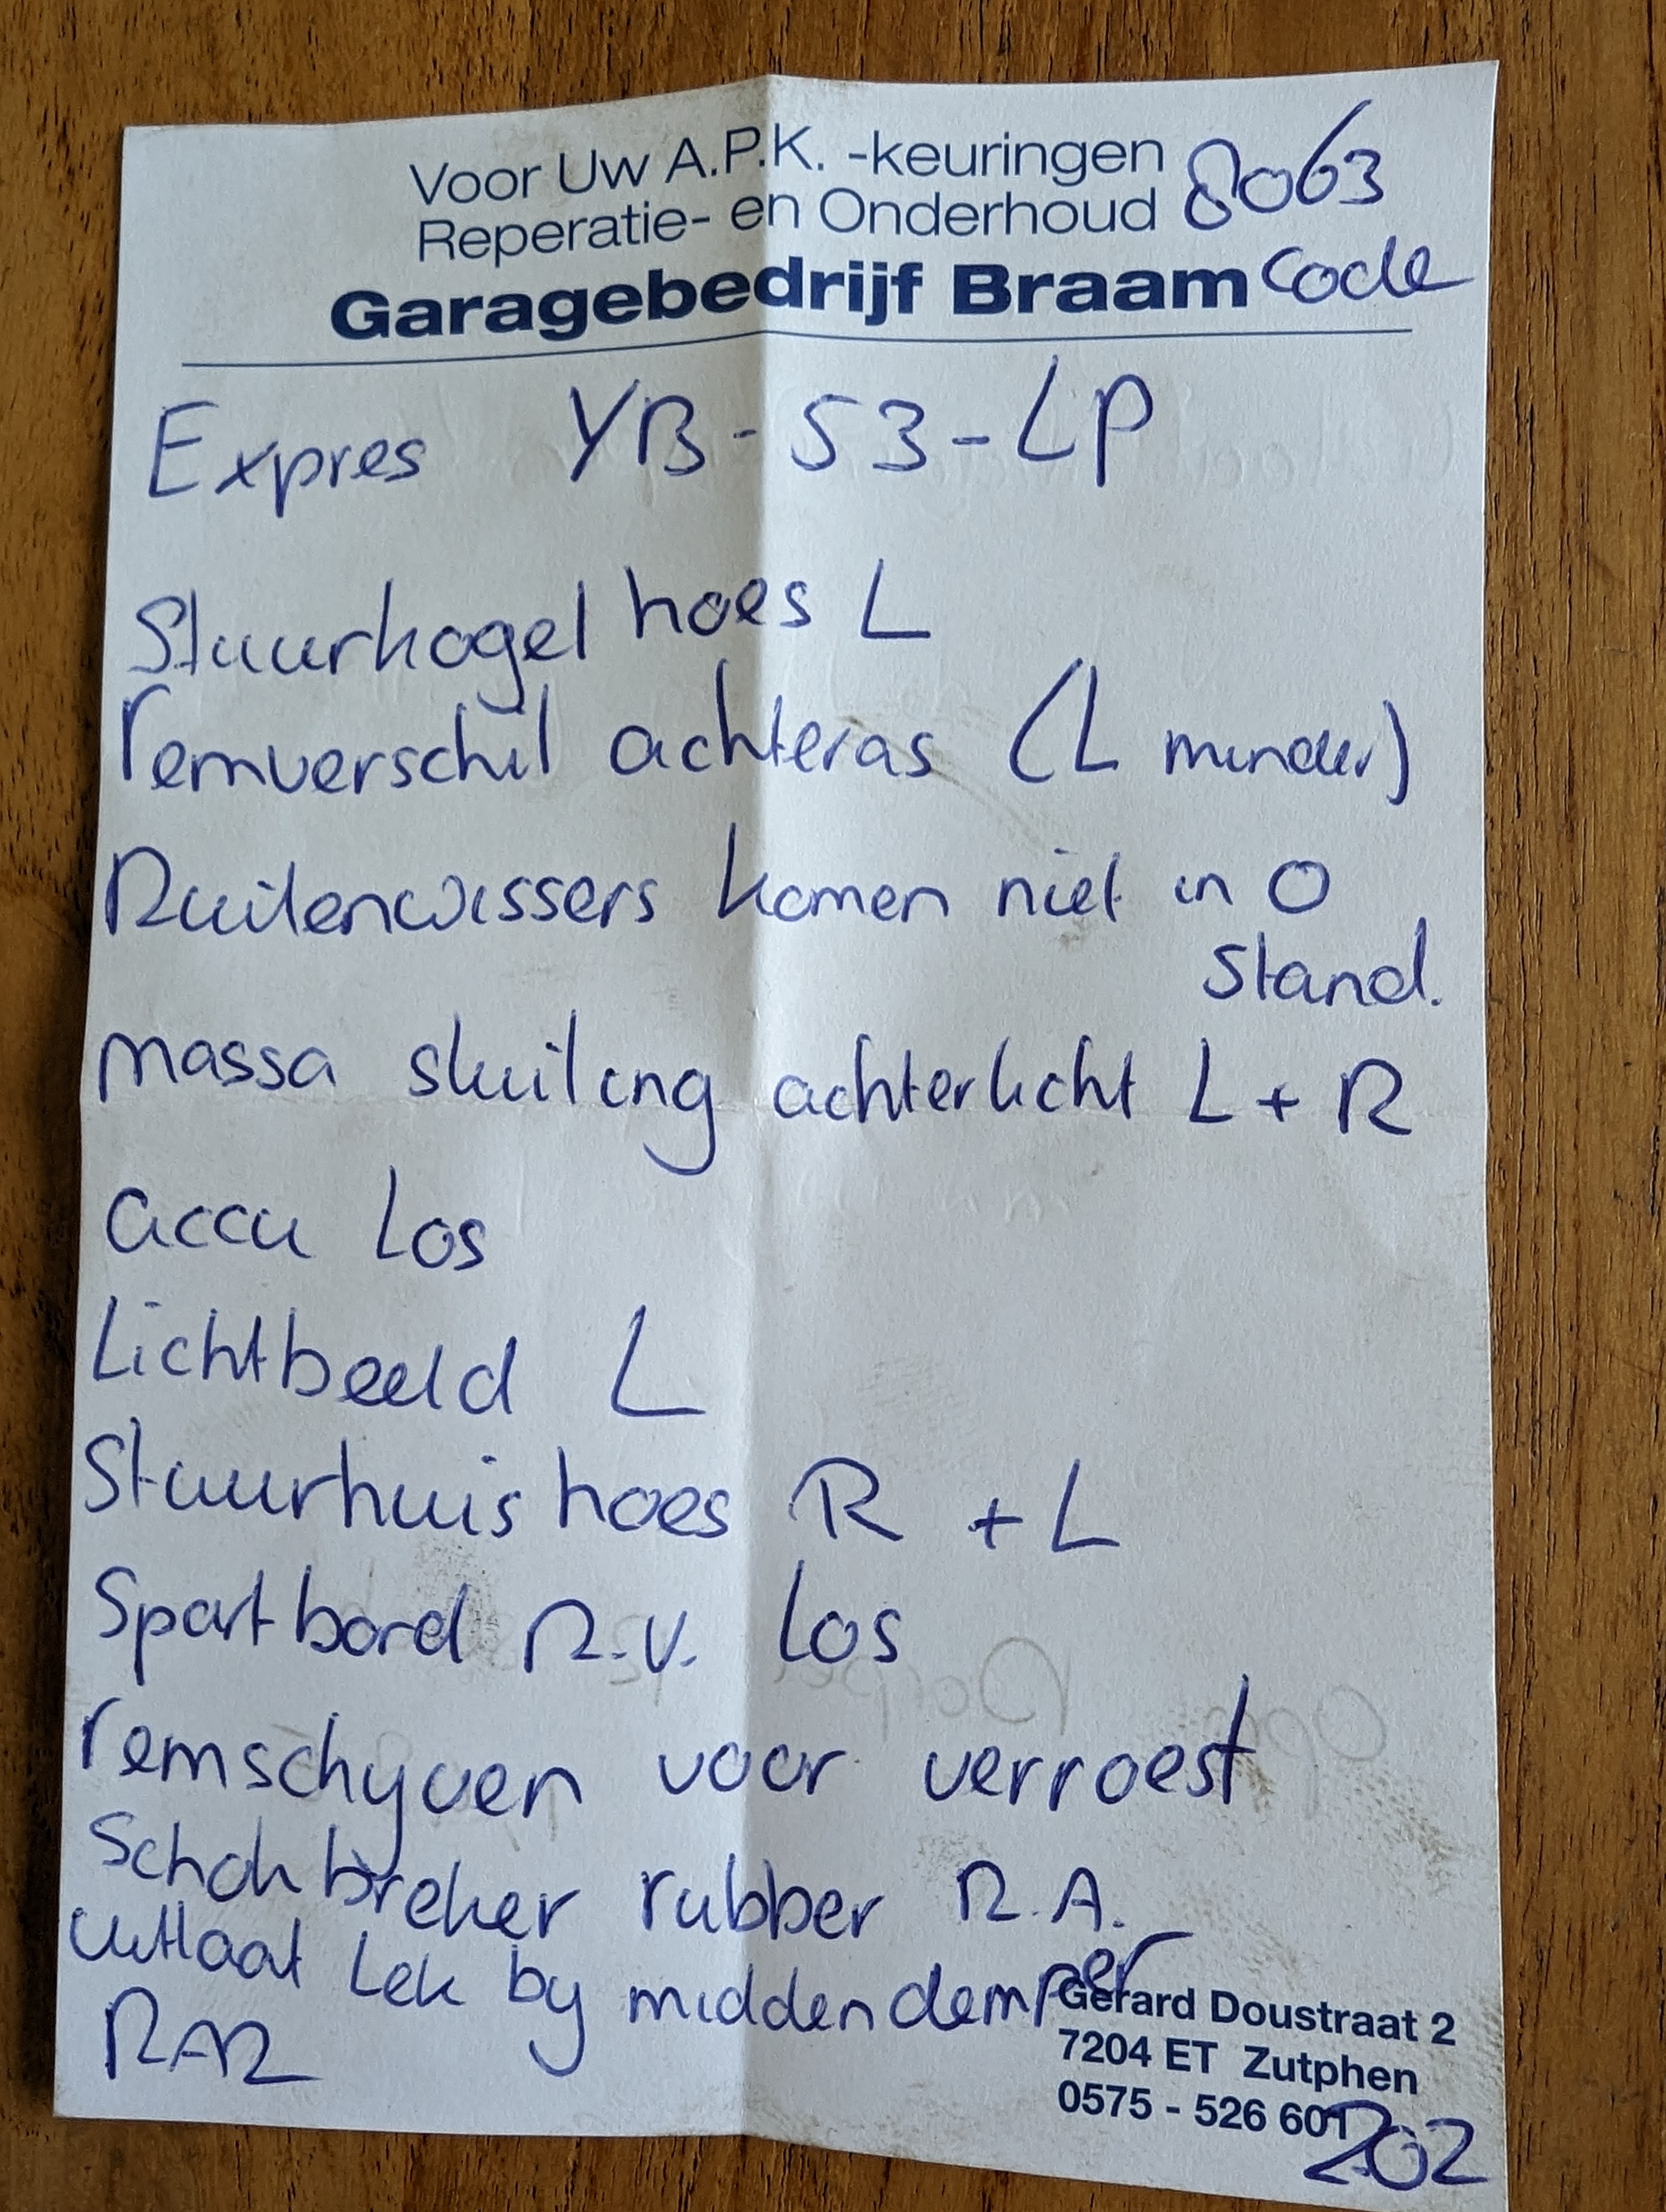 Voor Uw A.P.K. -keuringen
Reperatie- en Onderhoud 8063
Garagebedrijf Braam code
Expres YB-53-LP
Stuurkogel hoes L
remverschil achteras (L minder)
Ruitenwissers komen niet in O
stand.
massa sluiting achterlicht L + R
accu Los
Lichtbeeld L
Stuurhuis hoes R + L
Spatbord R.V. Los
remschyven voor verroest
Schokbreker rubber R.A.
uitlaat Lek by middendemper
Gerard Doustraat 2
7204 ET Zutphen
0575 - 526 601
202